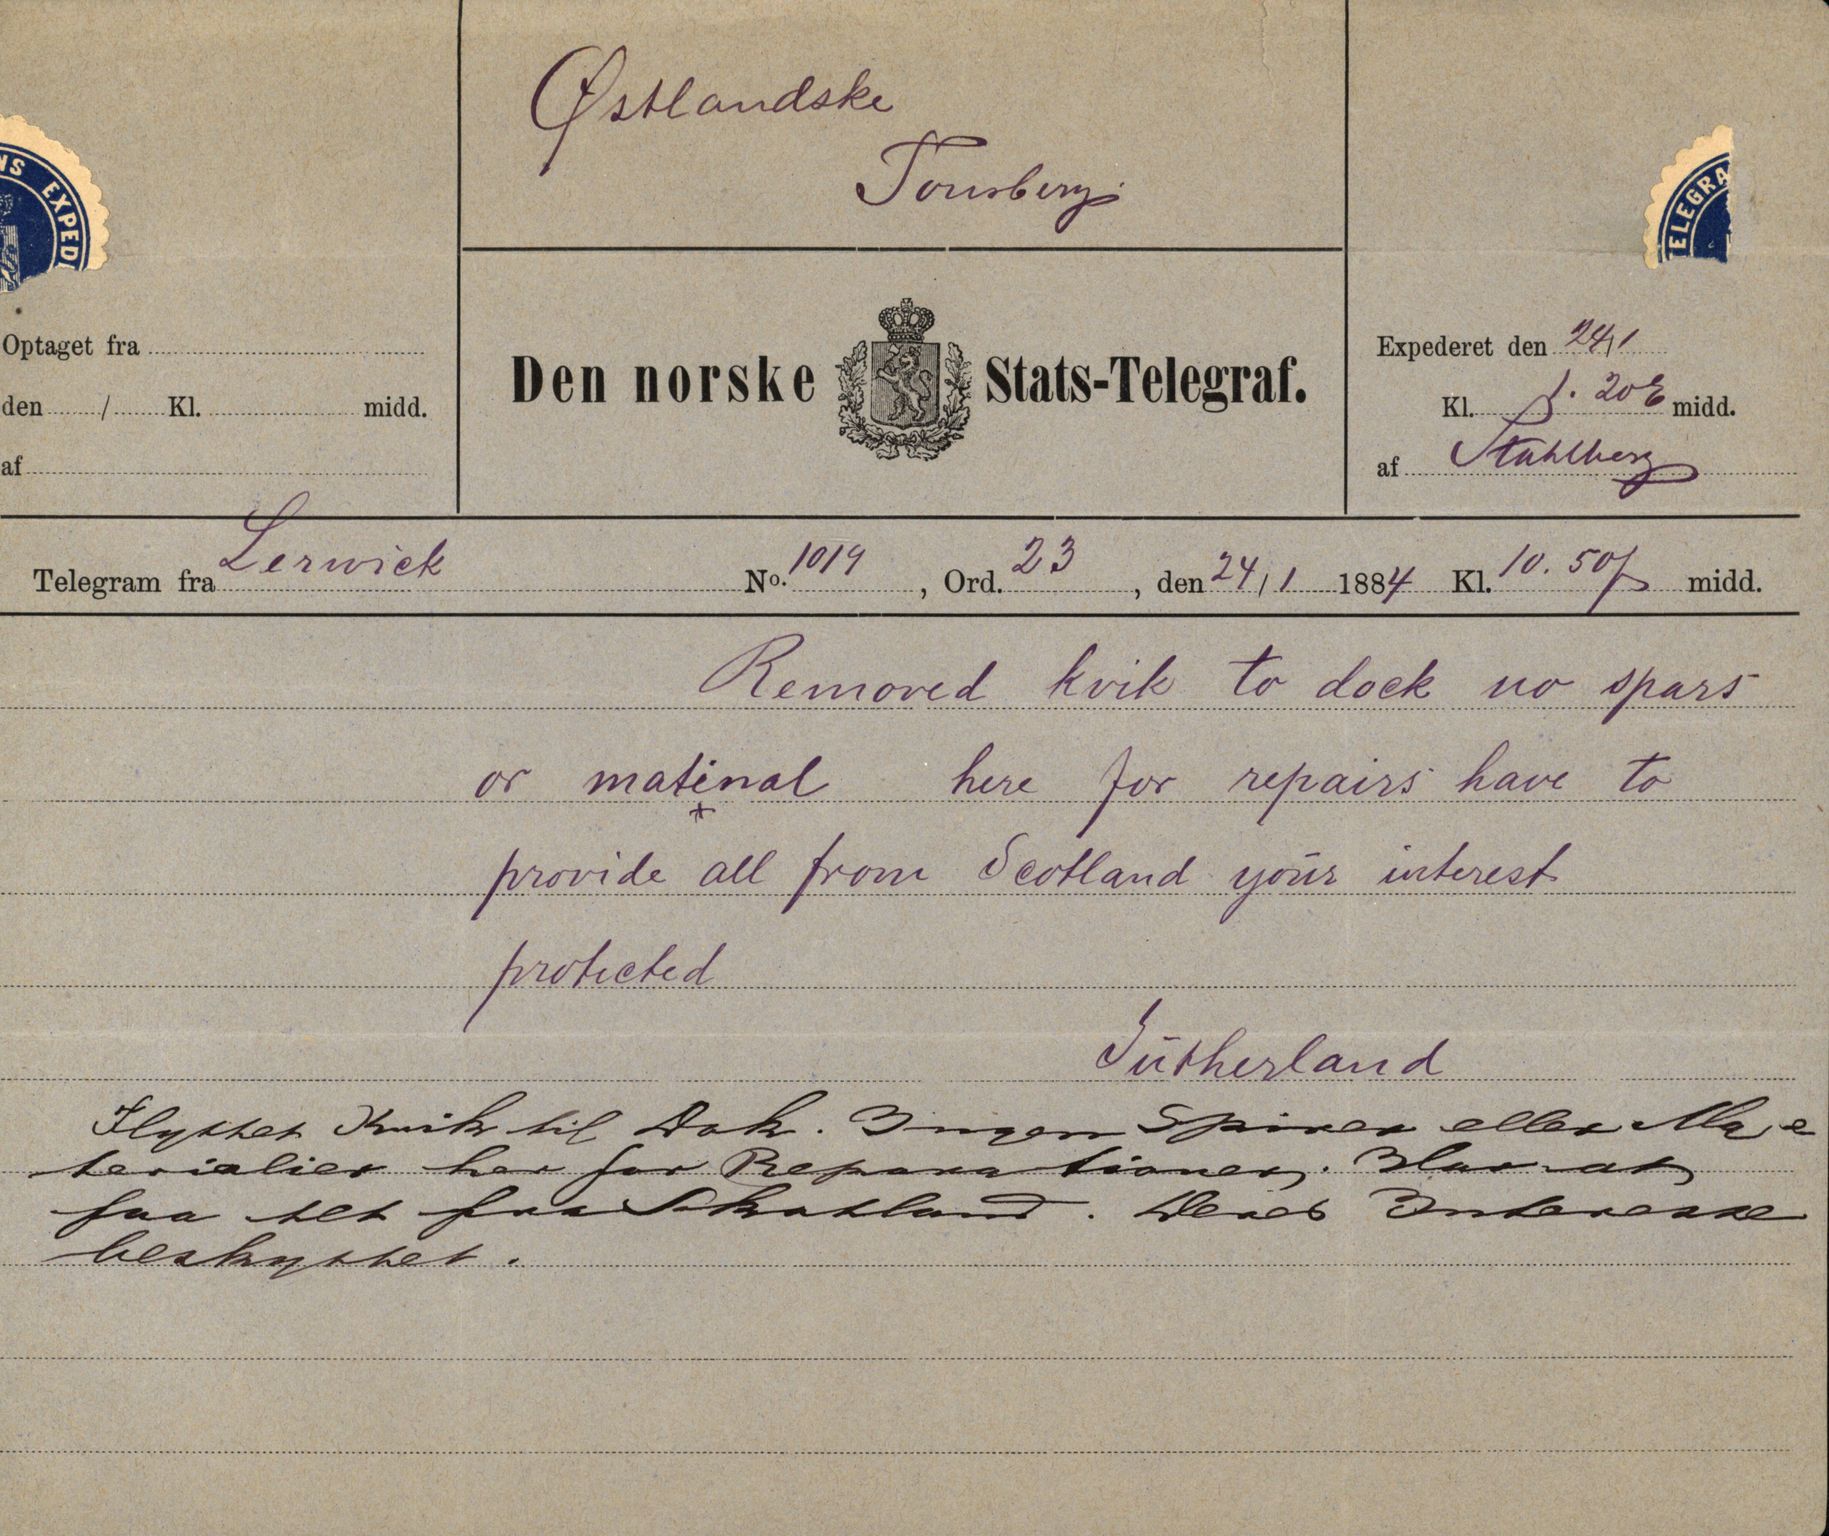 Østlandske
Tonsberg
NS EXPED
TELEGRA
Optaget fra
den / Kl. midd.
af
Den norske Stats-Telegraf.
Expederet den 24/1
Kl. 1.20 E midd.
af Stahlberg
Telegram fra Lerwick No. 1019, Ord. 23, den 24/1 1884 Kl. 10.50 f midd.
Removed kvik to dock no spars
or matinal here for repairs have to
provide all from Scotland your interest
protected
Sutherland
Flyttet Kvik til Dok. Ingen Spirer eller Ma
terialier her for Reparationer. Har at
faa alt fra Skotland. Deres Interesse
beskyttet.